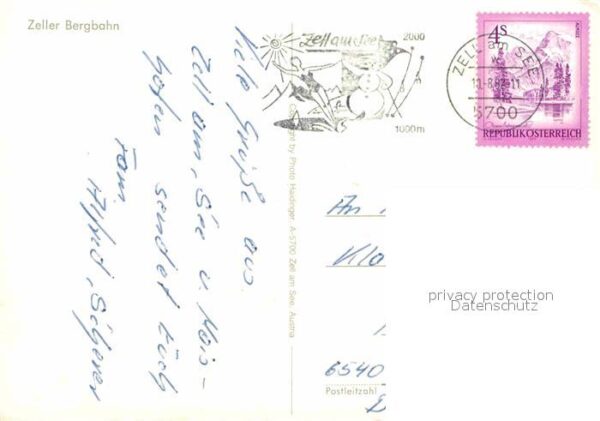 Zeller Bergbahn
Zell am See
2000
1000m
ZELL AM SEE
5700
4S
ALMSEE
REPUBLIK ÖSTERREICH
Viele Grüße aus
Zell am, See u
sendet Euch
Fam
Copyright by Photo Haidinger, A-5700 Zell am See, Austria
An
Klo
6540
Postleitzahl
privacy protection
Datenschutz